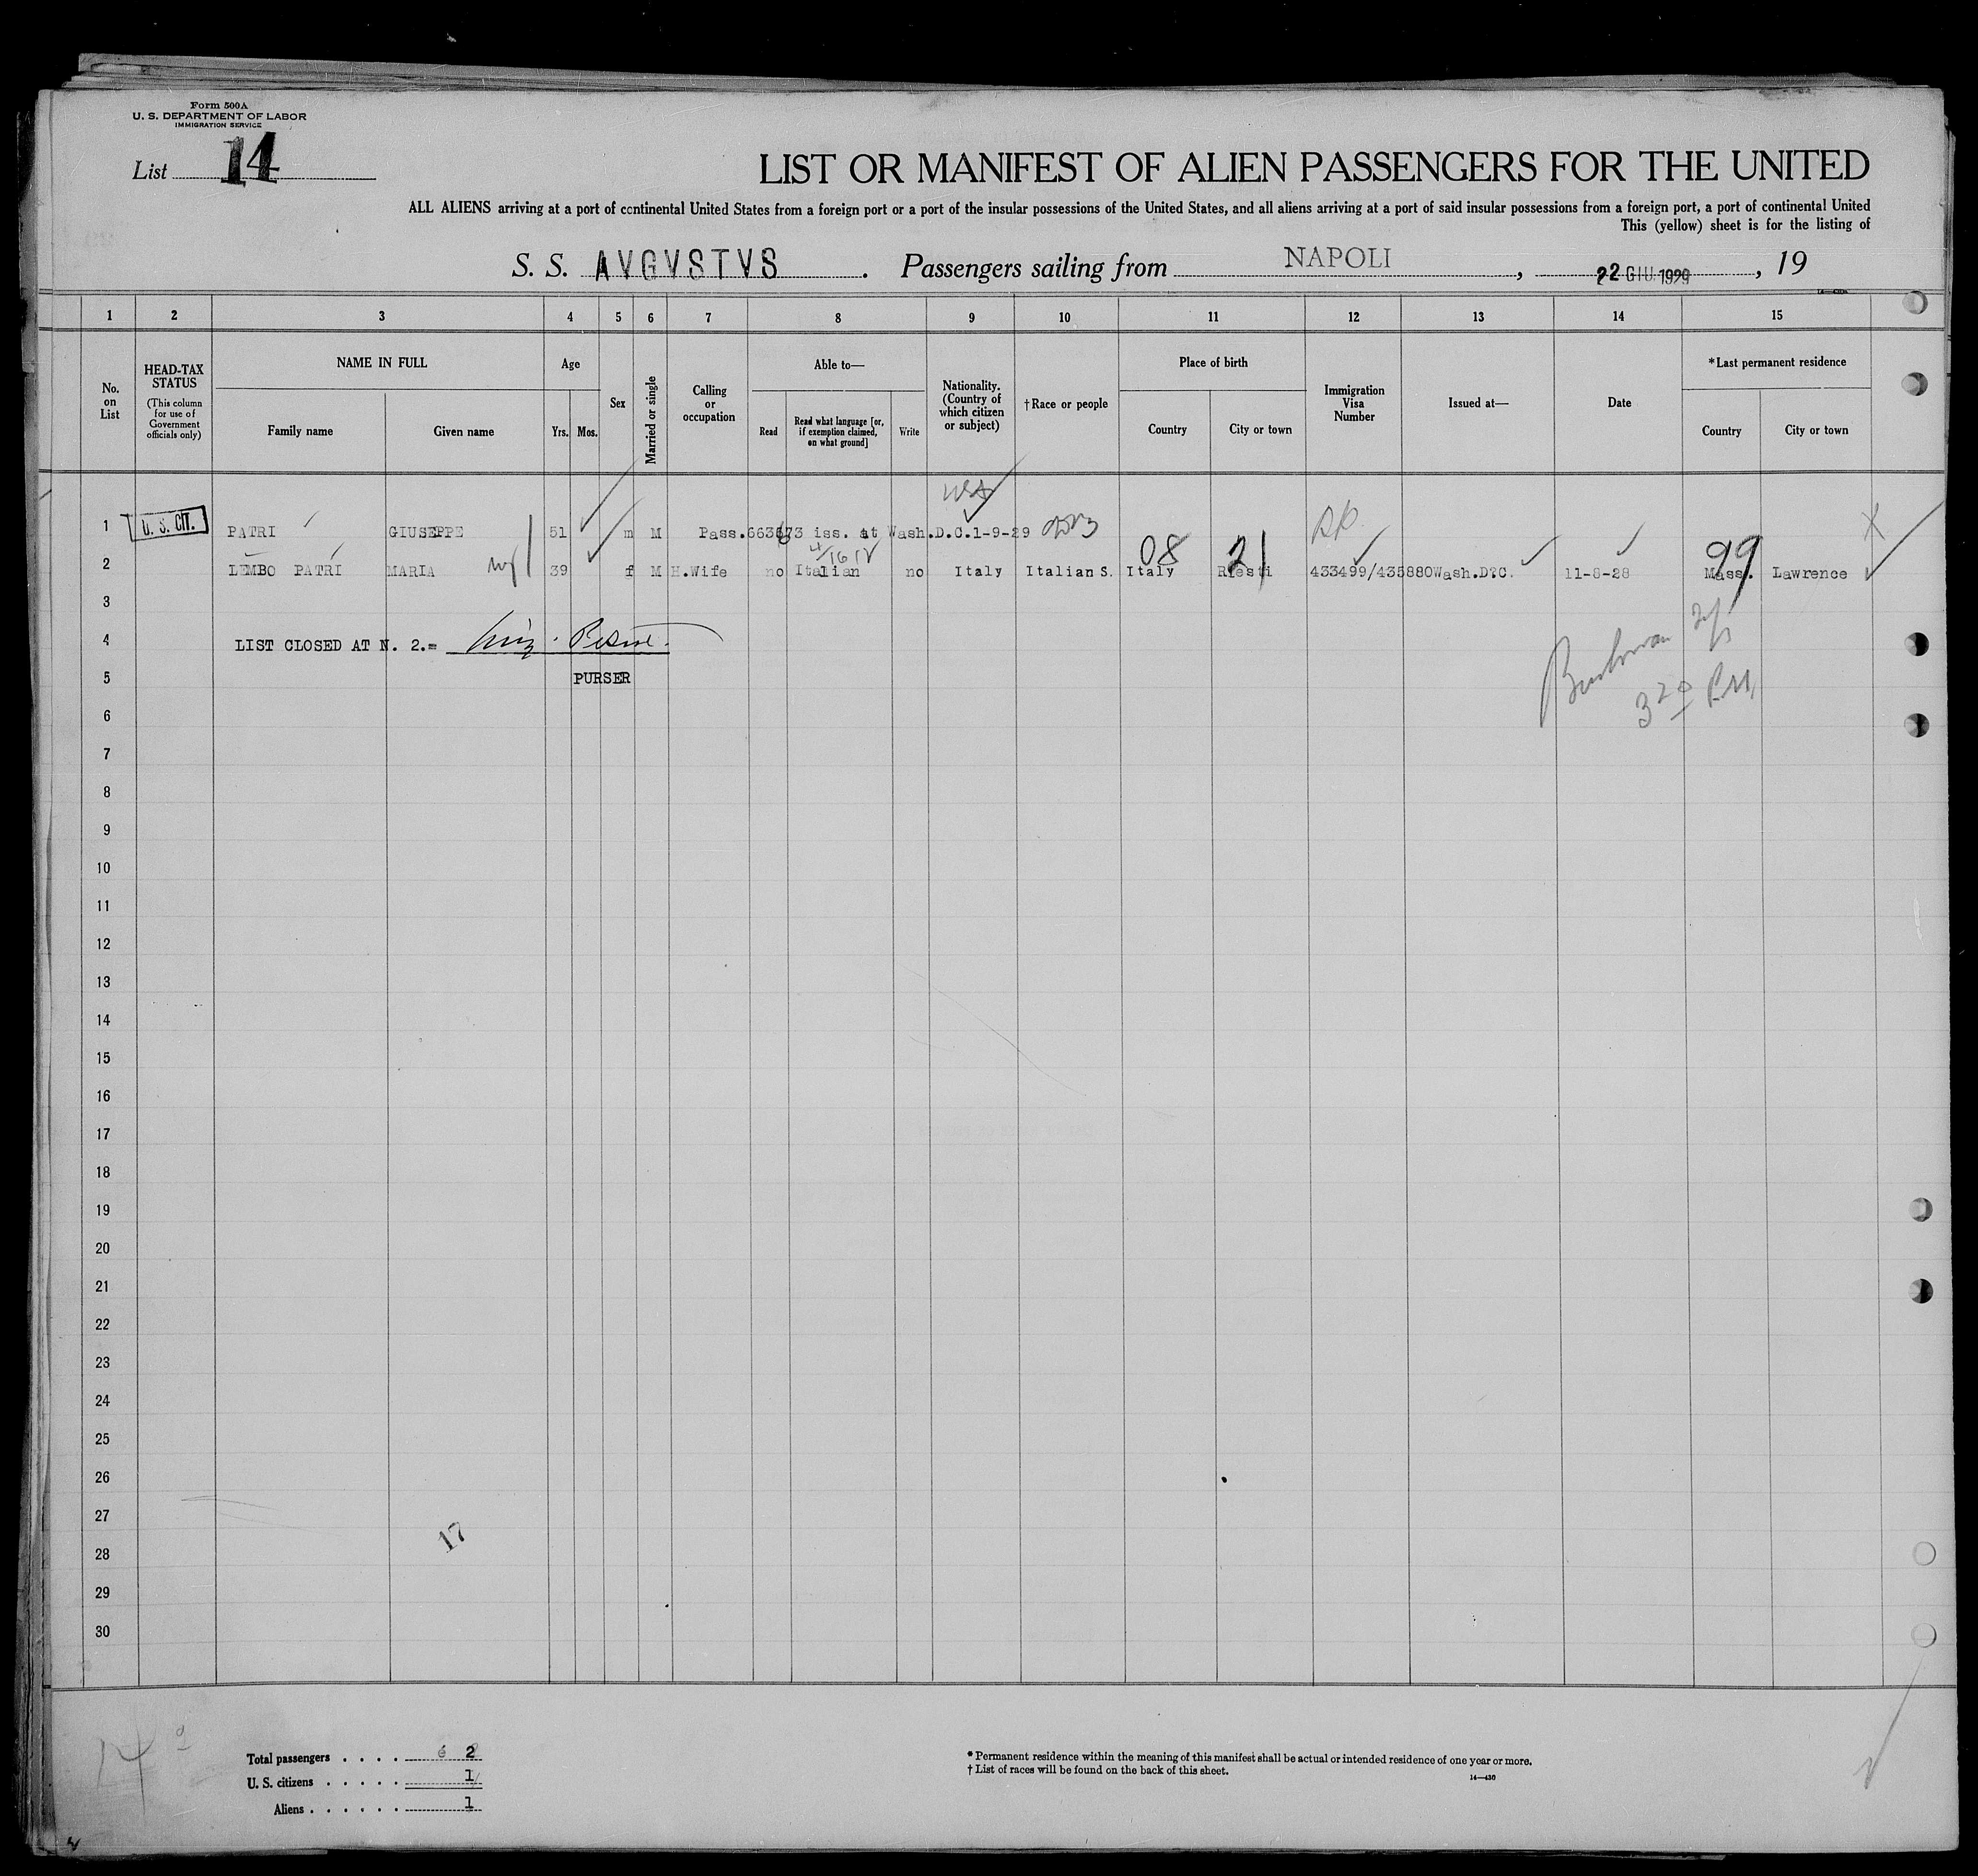 Form 500A
U. S. DEPARTMENT OF LABOR
IMMIGRATION SERVICE
List 14
LIST OR MANIFEST OF ALIEN PASSENGERS FOR THE UNITED
ALL ALIENS arriving at a port of continental United States from a foreign port or a port of the insular possessions of the United States, and all aliens arriving at a port of said insular possessions from a foreign port, a port of continental United
This (yellow) sheet is for the listing of
S. S. AVGVSTVS. Passengers sailing from NAPOLI, 22 GIU. 1929, 19
1 2 3 4 5 6 7 8 9 10 11 12 13 14 15
No. on List
HEAD-TAX STATUS
(This column for use of Government officials only)
NAME IN FULL
Family name
Given name
Age
Yrs. Mos.
Sex
Married or single
Calling or occupation
Able to—
Read
Read what language [or, if exemption claimed, on what ground]
Write
Nationality. (Country of which citizen or subject)
†Race or people
Place of birth
Country
City or town
Immigration Visa Number
Issued at—
Date
*Last permanent residence
Country
City or town
USA
1 U. S. CIT. PATRI GIUSEPPE 51 m M Pass. iss. at Wash.D.C.1-9-29
08 21 99
2 LEMBO PATRI MARIA 39 f M H.Wife no Italian no Italy Italian S. Italy Riesti 433499/435880 Wash.D.C. 11-8-28 Mass. Lawrence
3
4 LIST CLOSED AT N. 2.=
5 PURSER
3 20 P.M.
6
7
8
9
10
11
12
13
14
15
16
17
18
19
20
21
22
23
24
25
26
27
17
28
29
30
14
Total passengers . . . . 2
U. S. citizens . . . . . 1
Aliens . . . . . . 1
* Permanent residence within the meaning of this manifest shall be actual or intended residence of one year or more.
† List of races will be found on the back of this sheet.
14—430